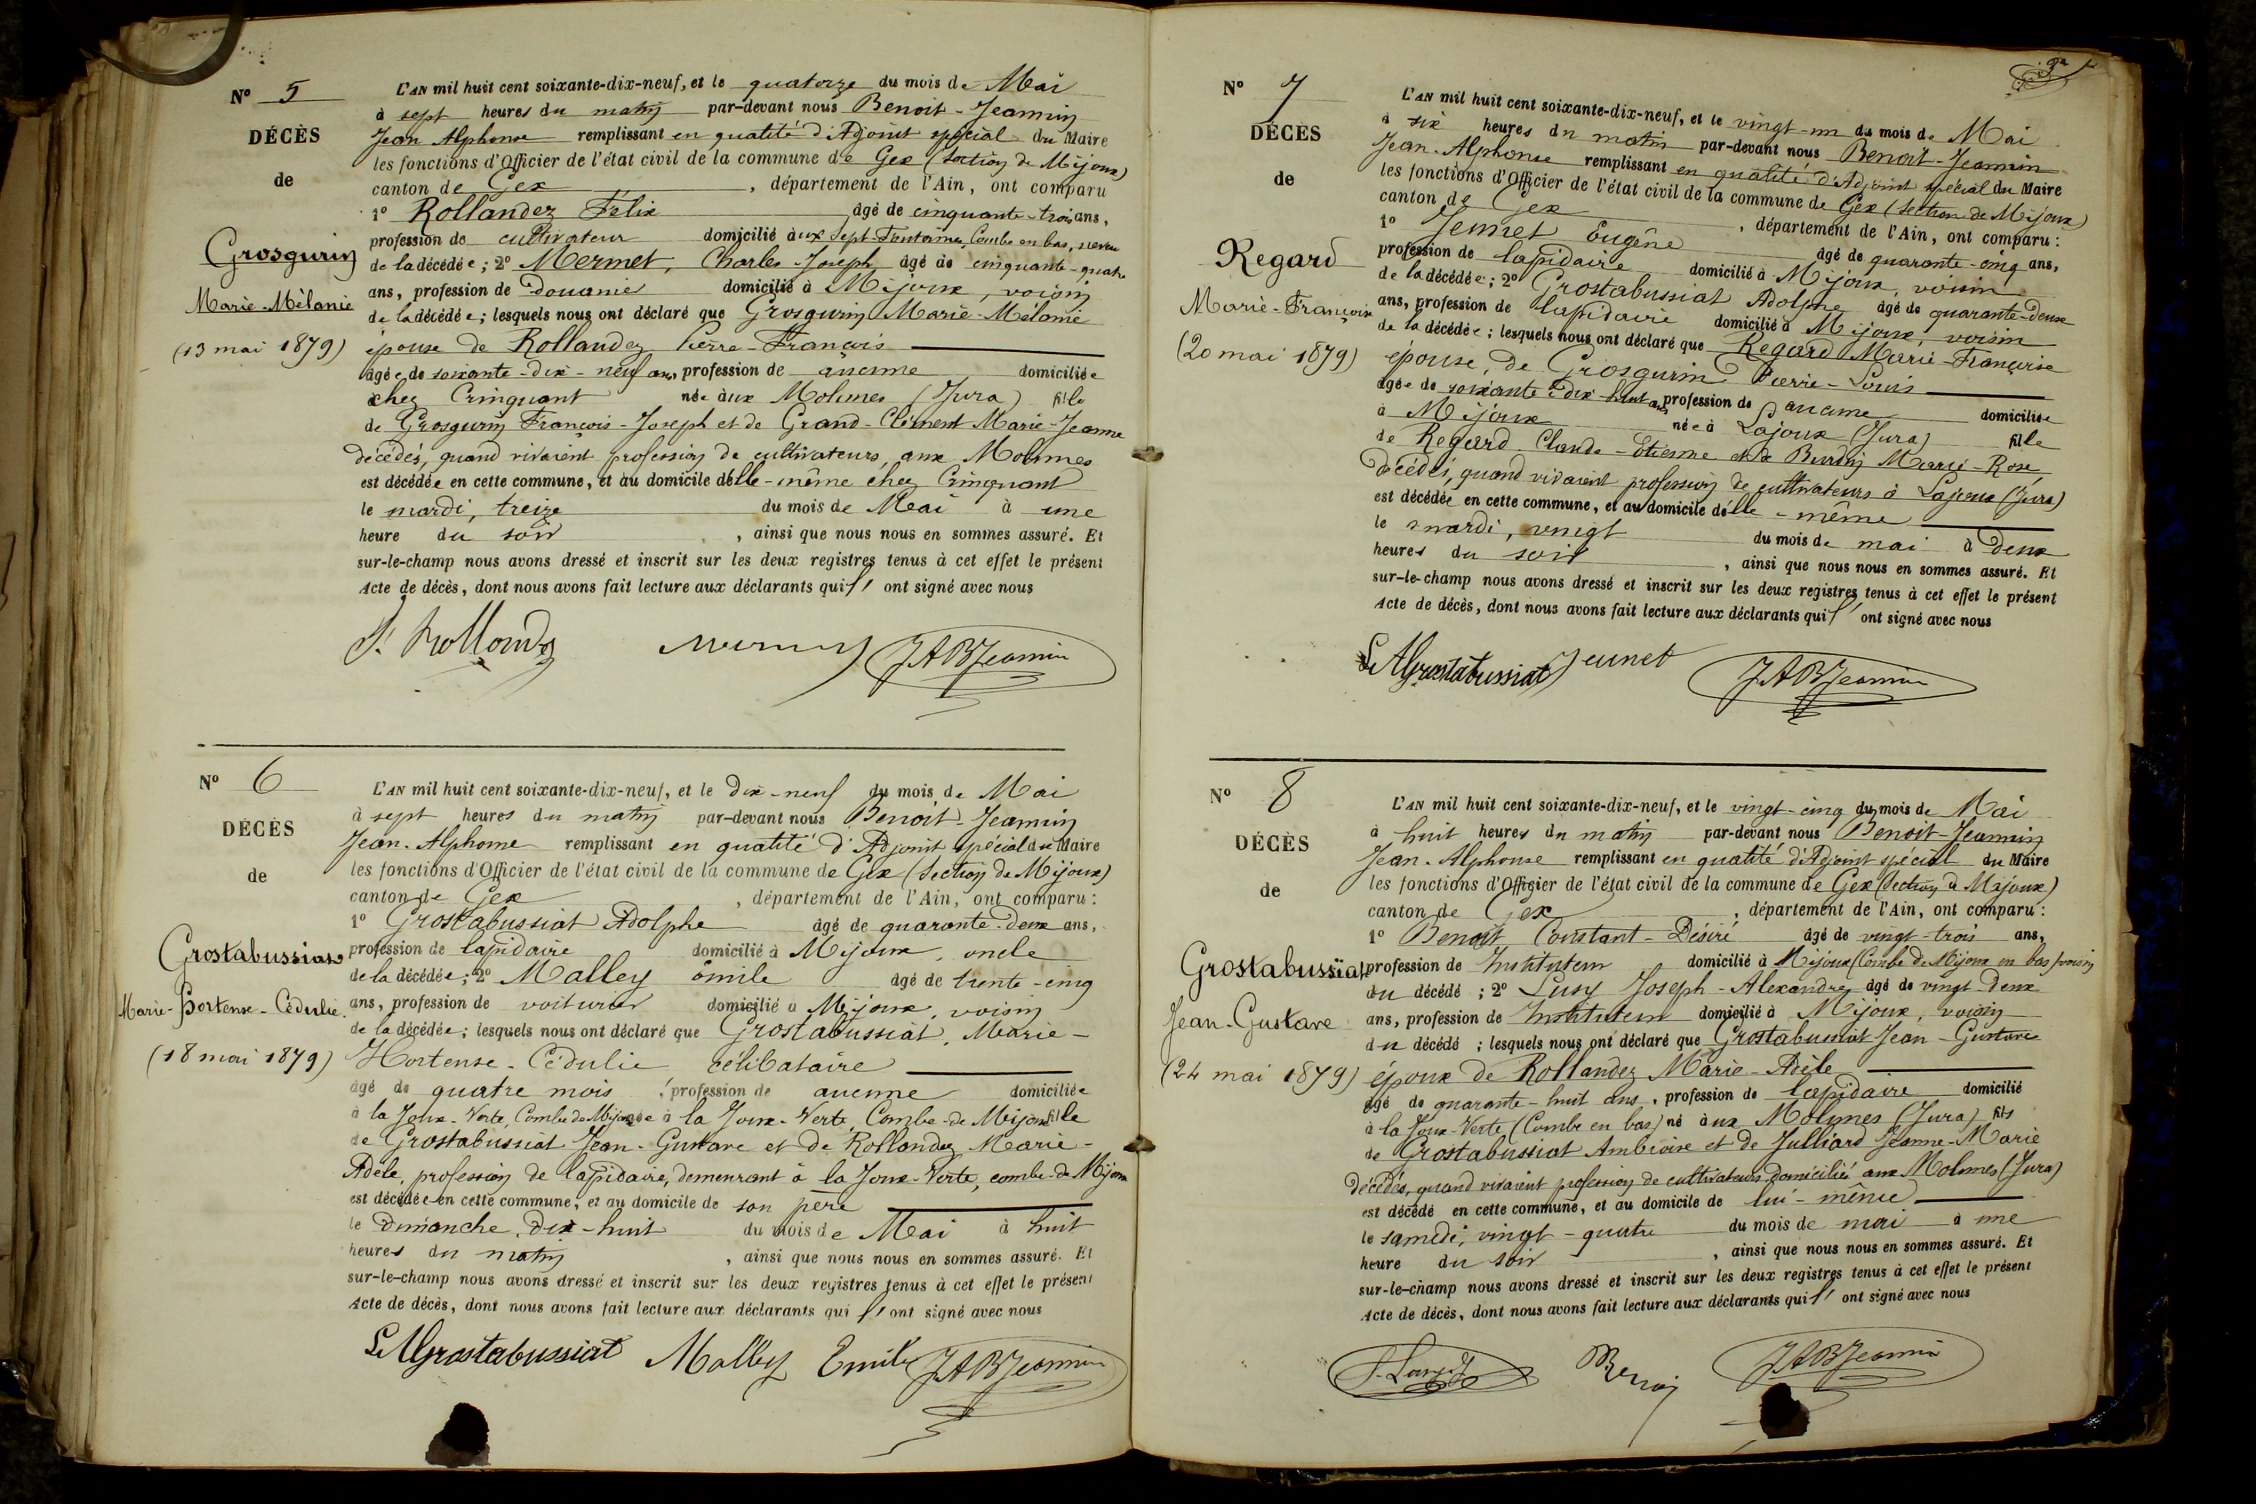 N° 5
DÉCÈS
de
Grosgurin
Marie-Mélanie
(13 mai 1879)
L'AN mil huit cent soixante-dix-neuf, et le quatorze du mois de Mai
à sept heures du matin par-devant nous Benoit-Jeannin
Jean Alphonse remplissant en qualité d'Adjoint spécial du Maire
les fonctions d'Officier de l'état civil de la commune de Gex (Section de Mijoux)
canton de Gex, département de l'Ain, ont comparu
1° Rollandez Félix âgé de cinquante-trois ans,
profession de cultivateur domicilié aux Sept-Fontaines, Combe en bas, neveu
de la décédée; 2° Mermet, Charles-Joseph âgé de cinquante-quatre
ans, profession de Douanier domicilié à Mijoux, voisin
de la décédée; lesquels nous ont déclaré que Grosgurin Marie-Mélanie
épouse de Rollandez Pierre-François
âgée de soixante-dix-neuf ans, profession de aucune domiciliée
chez Cringuant née aux Molunes (Jura) fille
de Grosgurin François-Joseph et de Grand-Clément Marie-Jeanne
décédés, quand vivaient profession de cultivateurs, aux Molunes
est décédée en cette commune, et au domicile d'elle-même chez Cringuant
le mardi, treize du mois de Mai à une
heure du soir, ainsi que nous nous en sommes assuré. Et
sur-le-champ nous avons dressé et inscrit sur les deux registres tenus à cet effet le présent
Acte de décès, dont nous avons fait lecture aux déclarants qui l' ont signé avec nous
F. Rollandez JABJeannin
N° 6
DÉCÈS
de
Grostabussiat
Marie-Hortense-Cédulie.
(18 mai 1879)
L'AN mil huit cent soixante-dix-neuf, et le dix-neuf du mois de Mai
à sept heures du matin par-devant nous Benoit-Jeannin
Jean-Alphonse remplissant en qualité d'Adjoint spécial du Maire
les fonctions d'Officier de l'état civil de la commune de Gex (Section de Mijoux)
canton de Gex, département de l'Ain, ont comparu:
1° Grostabussiat Adolphe âgé de quarante-deux ans,
profession de lapidaire domicilié à Mijoux, oncle
de la décédée; 2° Malley Émile âgé de trente-cinq
ans, profession de voiturier domicilié à Mijoux, voisin
de la décédée; lesquels nous ont déclaré que Grostabussiat, Marie-
Hortense-Cédulie célibataire
âgé de quatre mois, profession de aucune domiciliée
à la Joux-Verte, Combe de Mijoux née à la Joux-Verte, Combe-de Mijoux fille
de Grostabussiat Jean-Gustave et de Rollandez Marie-
Adèle, profession de lapidaire, demeurant à la Joux-Verte, combe-de Mijoux
est décédée en cette commune, et au domicile de son père
le Dimanche, dix-huit du mois de Mai à huit
heures du matin, ainsi que nous nous en sommes assuré. Et
sur-le-champ nous avons dressé et inscrit sur les deux registres tenus à cet effet le présent
Acte de décès, dont nous avons fait lecture aux déclarants qui l' ont signé avec nous
LAGrostabussiat Malley Emile JABJeannin
N° 7
DÉCÈS
de
Regard
Marie-Françoise
(20 mai 1879)
L'AN mil huit cent soixante-dix-neuf, et le vingt-un du mois de Mai
à six heures du matin par-devant nous Benoit-Jeannin
Jean-Alphonse remplissant en qualité d'Adjoint spécial du Maire
les fonctions d'Officier de l'état civil de la commune de Gex (Section de Mijoux)
canton de Gex, département de l'Ain, ont comparu:
1° Jeunet Eugène âgé de quarante-cinq ans,
profession de lapidaire domicilié à Mijoux, voisin
de la décédée; 2° Grostabussiat Adolphe âgé de quarante-deux
ans, profession de lapidaire domicilié à Mijoux, voisin
de la décédée; lesquels nous ont déclaré que Regard Marie-Françoise
épouse, de Grosgurin Pierre-Louis
âgée de soixante-dix-huit ans, profession de aucune domiciliée
à Mijoux née à Lajoux (Jura) fille
de Regard Claude-Etienne et de Burdin Marie-Rose
décédés, quand vivaient profession de cultivateurs à Lajoux (Jura)
est décédée en cette commune, et au domicile d'elle-même
le mardi, vingt du mois de mai à deux
heures du soir, ainsi que nous nous en sommes assuré. Et
sur-le-champ nous avons dressé et inscrit sur les deux registres tenus à cet effet le présent
Acte de décès, dont nous avons fait lecture aux déclarants qui l' ont signé avec nous
LAGrostabussiat Jeunet JABJeannin
N° 8
DÉCÈS
de
Grostabussiat
Jean-Gustave
(24 mai 1879)
L'AN mil huit cent soixante-dix-neuf, et le vingt-cinq du mois de Mai
à huit heures du matin par-devant nous Benoit-Jeannin
Jean-Alphonse remplissant en qualité d'Adjoint spécial du Maire
les fonctions d'Officier de l'état civil de la commune de Gex (Section de Mijoux)
canton de Gex, département de l'Ain, ont comparu:
1° Benoit Constant-Désiré âgé de vingt-trois ans,
profession de Instituteur domicilié à Mijoux (Combe de Mijoux en bas) voisin
du décédé; 2° Lusy Joseph-Alexandre âgé de vingt-deux
ans, profession de Instituteur domicilié à Mijoux, voisin
du décédé; lesquels nous ont déclaré que Grostabussiat Jean-Gustave
époux de Rollandez Marie-Adèle
âgé de quarante-huit ans, profession de lapidaire domicilié
à la Joux-Verte (Combe en bas) né aux Molunes (Jura) fils
de Grostabussiat Ambroise et de Julliard Jeanne-Marie
décédés, quand vivaient profession de cultivateurs, domiciliés aux Molunes (Jura)
est décédé en cette commune, et au domicile de lui-même
le samedi, vingt-quatre du mois de mai à une
heure du soir, ainsi que nous nous en sommes assuré. Et
sur-le-champ nous avons dressé et inscrit sur les deux registres tenus à cet effet le présent
Acte de décès, dont nous avons fait lecture aux déclarants qui l' ont signé avec nous
JABJeannin